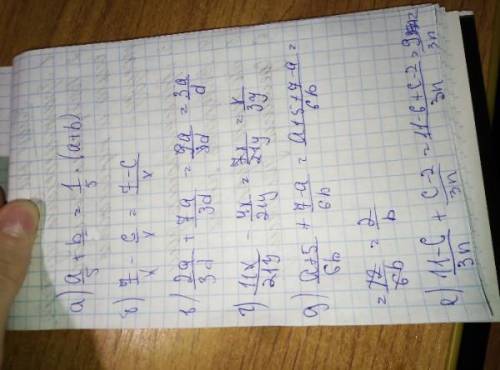 а) a/5 + b/5 = 1/5 · (a+b)
б) 7/x - c/x = 7-c/x
в) 2a/3d + 7a/3d = 9a/3d = 3a/d
г) 11x/21y - 4x/21y = 7x/21y = x/3y
д) a+5/6b + 7-a/6b = a+5+7-a/6b =
= 12/6b = 2/b
е) 11-c/3n + c-2/3n = 11-c+c-2/3n = 9/3n